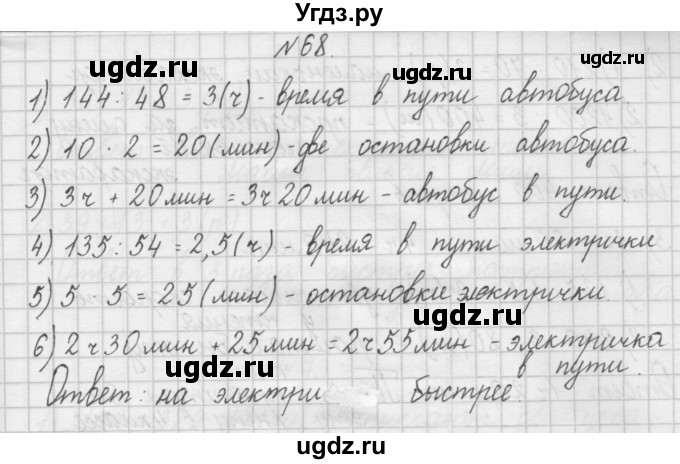 Угдз.ру
№68.
ugdz.ru ugdz.ru
1) 144 : 48 = 3(ч) - время в пути автобуса.
2) 10 · 2 = 20(мин) - две остановки автобуса.
ugdz.ru ugdz.ru
3) 3ч + 20мин = 3ч 20мин - автобус в пути.
4) 135 : 54 = 2,5(ч) - время в пути электрички
5) 5 5 = 25(мин) - остановки электрички.
ugdz.ru ugdz.ru
6) 2ч30мин + 25мин = 2ч55мин - электричка
в пути.
Ответ: на электри быстрее.
ugdz.ru ugdz.ru